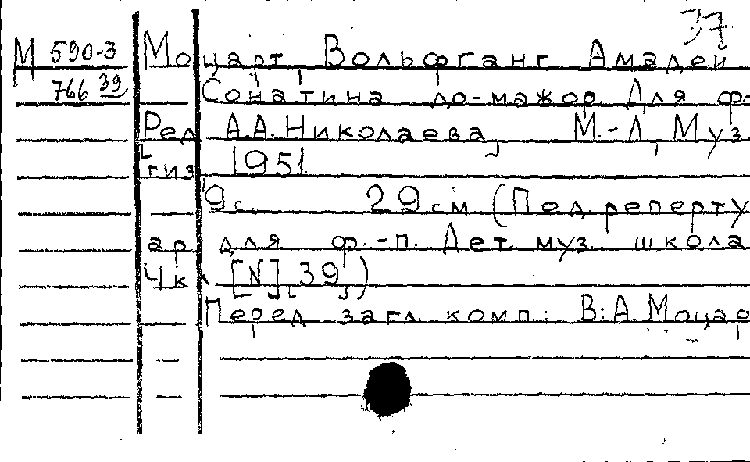 37
М 590-3 Моцарт Вольфганг Амадей
766 39 Сонатина до-мажор Для ф-
Ред А.А.Николаева, М.-Л, Муз
гиз 1951
9с. 29см (Пед.реперту
ар для ф.-п. Дет. муз. школа
4 к [N] 39,)
Перед загл. комп: В.А.Моцар